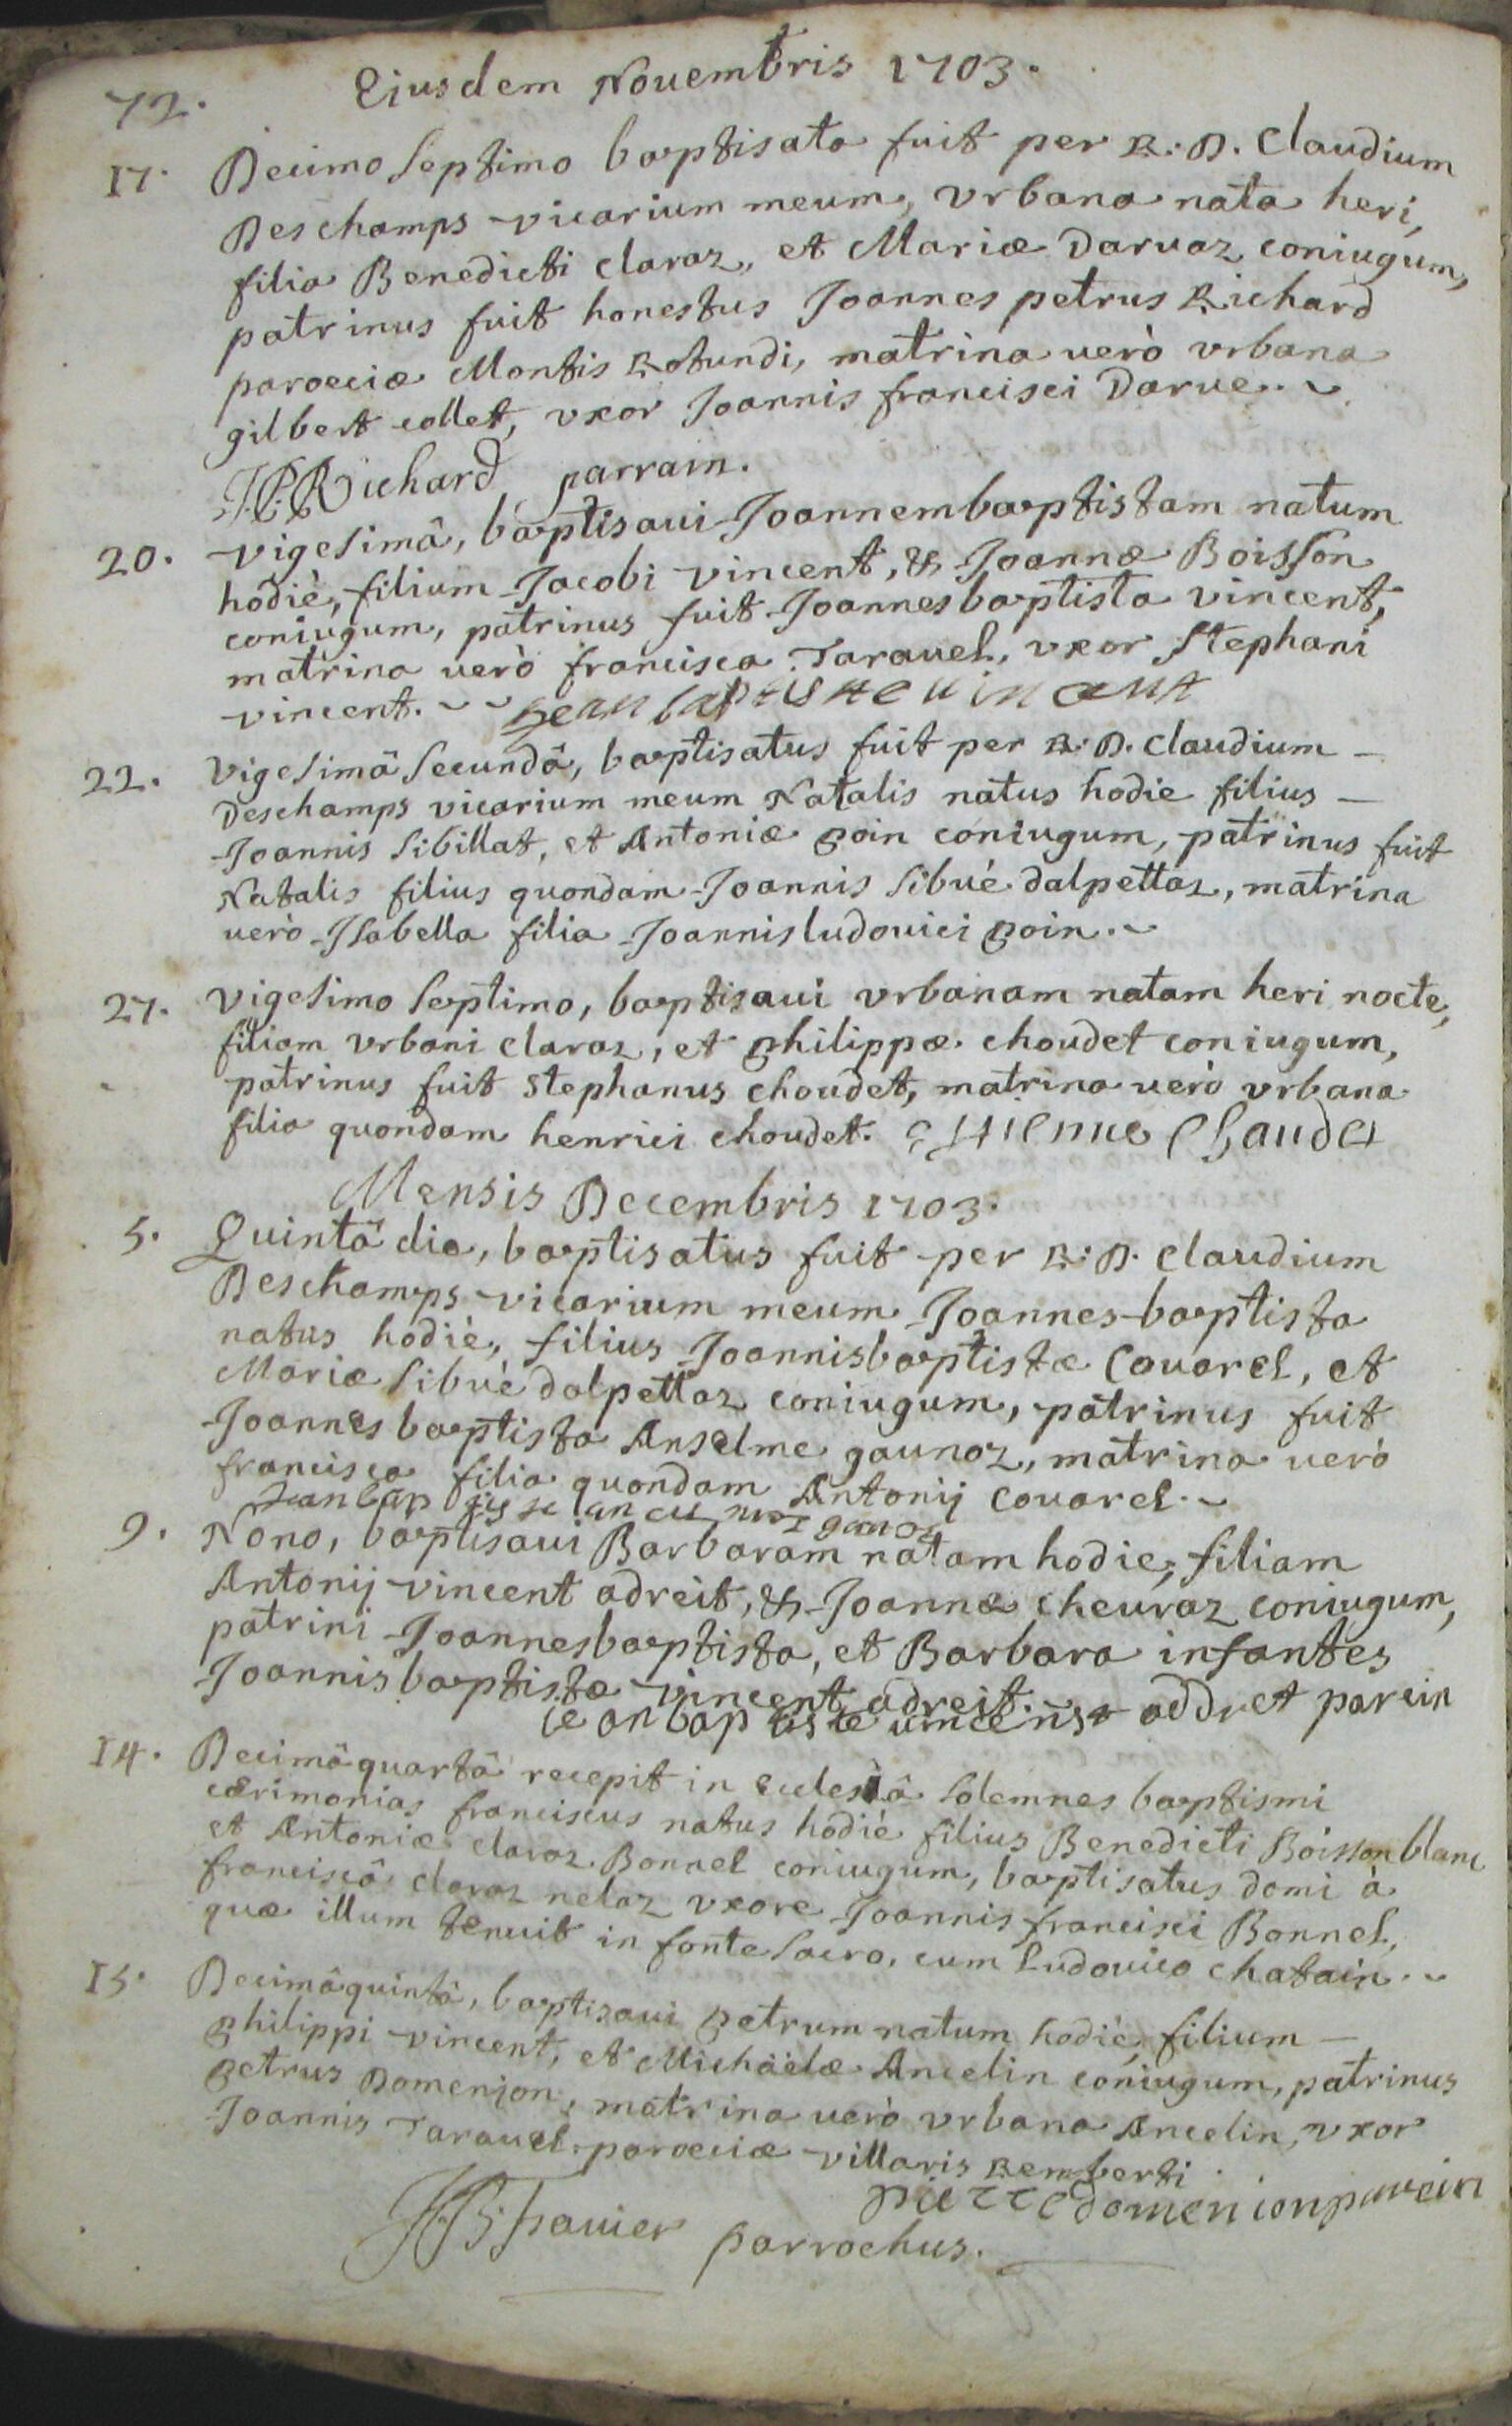 72.
Eiusdem Nouembris 1703.
17. Decimo septimo baptisata fuit per R: D. Claudium
Deschamps vicarium meum, vrbana nata heri,
filia Benedicti claraz, et Mariæ Daruaz coniugum,
patrinus fuit honestus Joannes petrus Richard
parœciæ Montis Rotundi, matrina uerò vrbana
gilbert collet, vxor Joannis francisci Darue.
J.P. Richard parrain.
20. vigesimâ, baptisaui Joannembaptistam natum
hodiè, filium Jacobi vincent, & Joannæ Boisson
coniugum, patrinus fuit Joannesbaptista vincent,
matrina uerò francisca Tarauel, vxor Stephani
vincent. Jean baptiste uincent
22. vigesimâ secundâ, baptisatus fuit per R: D. claudium
Deschamps vicarium meum Natalis natus hodie filius
Joannis sibillat, et Antoniæ poin coniugum, patrinus fuit
Natalis filius quondam Joannis sibué dalpettaz, matrina
uerò Isabella filia Joannisludouici poin.
27. vigesimo septimo, baptisaui vrbanam natam heri nocte,
filiam vrbani claraz, et philippæ choudet coniugum,
patrinus fuit stephanus choudet, matrina uerò vrbana
filia quondam henrici choudet. estienne Chaudet
Mensis Decembris 1703.
5. Quintâ dia, baptisatus fuit per R: D. claudium
Deschamps vicarium meum Joannes-baptista
natus hodiè, filius Joannisbaptistæ Couarel, et
Mariæ sibuè dalpettaz coniugum, patrinus fuit
Joannes baptista Anselme gaunoz, matrina uerò
francisca filia quondam Antonij couarel.
9. Nono, baptisaui Barbaram natam hodie, filiam
Antonij vincent adreit, & Joannæ cheuraz coniugum,
patrini Joannesbaptista, et Barbara infantes
Joannisbaptistæ vincent adreit.
ie an bap tis te uincenst addret parein
14. Decimâquartâ recepit in ecclesiâ solemnes baptismi
cærimonias franciscus natus hodiè filius Benedicti Boisson blanc
et Antoniæ claraz Bonnel coniugum, baptisatus domi à
franciscâ claraz nelaz vxore Joannis francisci Bonnel,
quæ illum tenuit in fonte sacro, cum Ludouico chatain.
15. Decimâquintâ, baptisaui petrum natum hodiè, filium
philippi vincent, et Michäelæ Ancelin coniugum, patrinus
petrus Domenjon, matrina uerò vrbana Ancelin, vxor
Joannis Tarauel parœciæ villaris Remberti.
pierre domenion parein
parrochus.